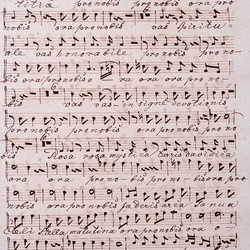 pro nobis ora pro
pro nobis ora pro nobis vas Spiritu
ale vas honorabile ora pro no
bis ora pro nobis ora ora pro no
bis vas insigne devotionis
pro nobis ora pro nobis ora pro no
bis Rosa mystica turris Davidica
ora ora pro nobis ora pro
nobis ora pro nobis foederis arca Janua
Coeli Stella matutina ora pro nobis ora pro nobis